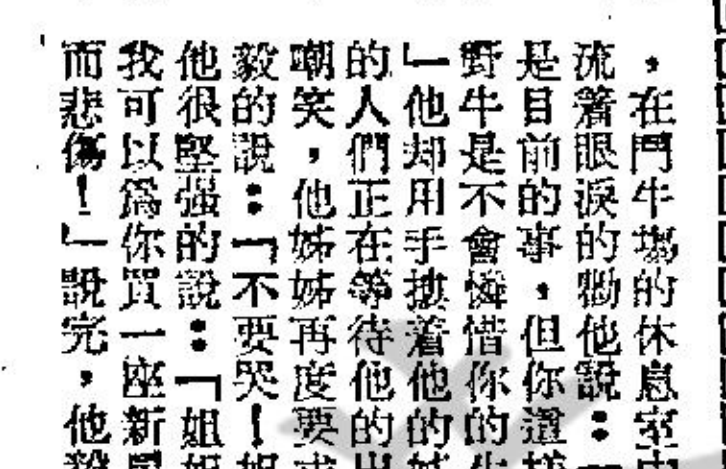 ，在鬥牛場的休息室
流着眼淚的勸他說：
是目前的事，但你這
野牛是不會憐惜你的
」他却用手摟着他的
的人們正在等待他的
嘲笑，他姊姊再度要
毅的說：「不要哭！
他很堅强的說：「姐
我可以爲你買一座新
而悲傷！」說完，他